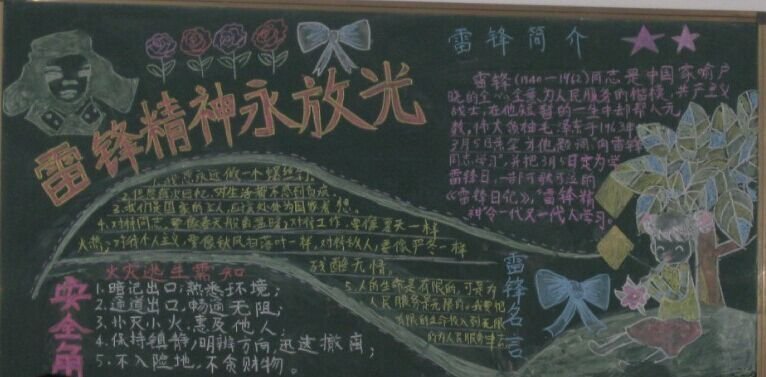 雷锋精神永放光
雷锋简介
雷锋(1940—1962)同志是中国家喻户
晓的全心全意为人民服务的楷模,共产主义
战士,在他短暂的一生中却帮人无
数,伟大领袖毛泽东于1963年
3月5日亲笔为他题词“向雷锋
同志学习”,并把3月5日定为学
雷锋日,
《雷锋日记》,雷锋精
神令一代又一代人学习。
永远做一个
3.我们是国家的主人,应该处处为国家着想。
4.对待同志要像春天般的温暖;对待工作,要像夏天一样
火热;对待个人主义,要像秋风扫落叶一样,对待敌人,要像严冬一样
残酷无情。
5.人的生命是有限的,可是为
人民服务是无限的,我要把
有限的生命投入到无限
的为人民服务中去
雷锋名言
安全角
火灾逃生需知
1.暗记出口,熟悉环境;
2.通道出口,畅通无阻;
3.扑灭小火,惠及他人;
4.保持镇静,明辨方向,迅速撤离;
5.不入险地,不贪财物。